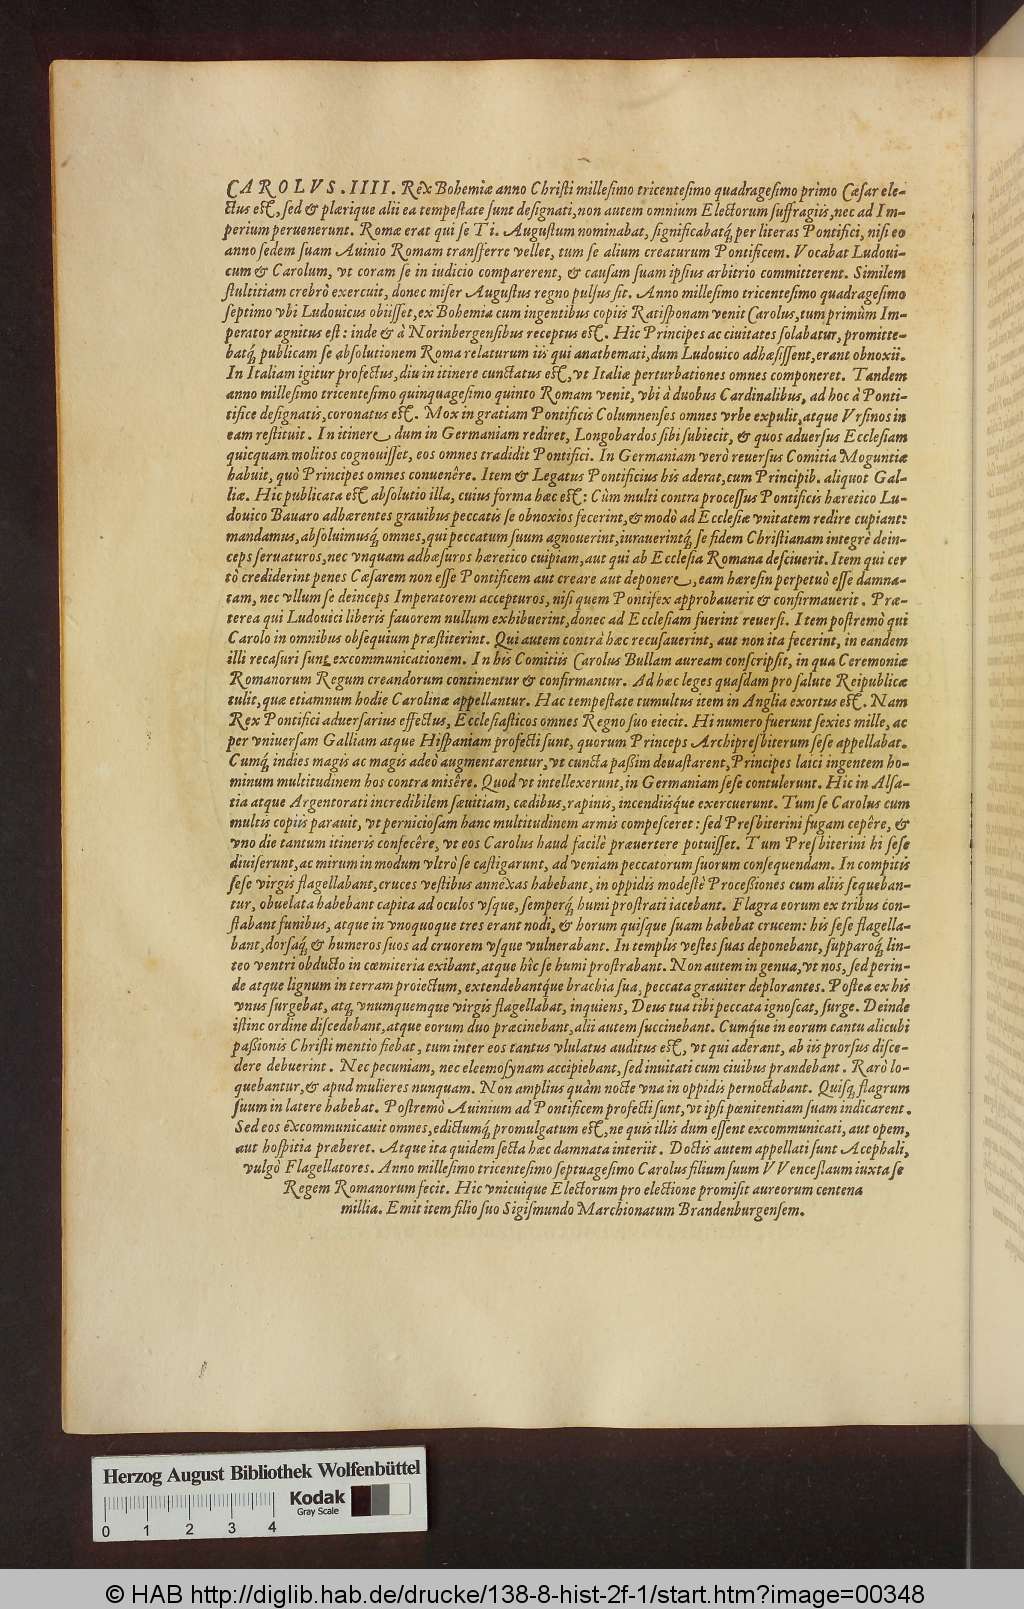 CAROLVS.IIII. Rex Bohemiæ anno Christi millesimo tricentesimo quadragesimo primo Cæsar ele-
ctus est, sed & plærique alii ea tempestate sunt designati, non autem omnium Electorum suffragiis, nec ad Im-
perium peruenerunt. Romæ erat qui se Ti. Augustum nominabat, significabatq́; per literas Pontifici, nisi eo
anno sedem suam Auinio Romam transferre vellet, tum se alium creaturum Pontificem. Vocabat Ludoui-
cum & Carolum, vt coram se in iudicio comparerent, & causam suam ipsius arbitrio committerent. Similem
stultitiam crebrò exercuit, donec miser Augustus regno pulsus sit. Anno millesimo tricentesimo quadragesimo
septimo vbi Ludouicus obiisset, ex Bohemia cum ingentibus copiis Ratisponam venit Carolus, tum primùm Im-
perator agnitus est: inde & à Norinbergensibus receptus est. Hic Principes ac ciuitates solabatur, promitte-
batq́; publicam se absolutionem Roma relaturum iis qui anathemati, dum Ludouico adhæsissent, erant obnoxii.
In Italiam igitur profectus, diu in itinere cunctatus est, vt Italiæ perturbationes omnes componeret. Tandem
anno millesimo tricentesimo quinquagesimo quinto Romam venit, vbi à duobus Cardinalibus, ad hoc à Ponti-
tifice designatis, coronatus est. Mox in gratiam Pontificis Columnenses omnes vrbe expulit, atque Vrsinos in
eam restituit. In itinere dum in Germaniam rediret, Longobardos sibi subiecit, & quos aduersus Ecclesiam
quicquam molitos cognouisset, eos omnes tradidit Pontifici. In Germaniam verò reuersus Comitia Moguntiæ
habuit, quò Principes omnes conuenêre. Item & Legatus Pontificius his aderat, cum Principib. aliquot Gal-
liæ. Hic publicata est absolutio illa, cuius forma hæc est: Cùm multi contra processus Pontificis hæretico Lu-
douico Bauaro adhærentes grauibus peccatis se obnoxios fecerint, & modò ad Ecclesiæ vnitatem redire cupiant:
mandamus, absoluimusq́; omnes, qui peccatum suum agnouerint, iurauerintq́; se fidem Christianam integrè dein-
ceps seruaturos, nec vnquam adhæsuros hæretico cuipiam, aut qui ab Ecclesia Romana desciuerit. Item qui cer
tò crediderint penes Cæsarem non esse Pontificem aut creare aut deponere, eam hæresin perpetuò esse damna-
tam, nec vllum se deinceps Imperatorem accepturos, nisi quem Pontifex approbauerit & confirmauerit. Præ-
terea qui Ludouici liberis fauorem nullum exhibuerint, donec ad Ecclesiam fuerint reuersi. Item postremò qui
Carolo in omnibus obsequium præstiterint. Qui autem contrà hæc recusauerint, aut non ita fecerint, in eandem
illi recasuri sunt excommunicationem. In his Comitiis Carolus Bullam auream conscripsit, in qua Ceremoniæ
Romanorum Regum creandorum continentur & confirmantur. Ad hæc leges quasdam pro salute Reipublicæ
tulit, quæ etiamnum hodie Carolinæ appellantur. Hac tempestate tumultus item in Anglia exortus est. Nam
Rex Pontifici aduersarius effectus, Ecclesiasticos omnes Regno suo eiecit. Hi numero fuerunt sexies mille, ac
per vniuersam Galliam atque Hispaniam profecti sunt, quorum Princeps Archipresbiterum sese appellabat.
Cumq́; indies magis ac magis adeò augmentarentur, vt cuncta passim deuastarent, Principes laici ingentem ho-
minum multitudinem hos contra misêre. Quod vt intellexerunt, in Germaniam sese contulerunt. Hic in Alsa-
tia atque Argentorati incredibilem sæuitiam, cædibus, rapinis, incendiisque exercuerunt. Tum se Carolus cum
multis copiis parauit, vt perniciosam hanc multitudinem armis compesceret: sed Presbiterini fugam cepêre, &
vno die tantum itineris confecêre, vt eos Carolus haud facilè præuertere potuisset. Tum Presbiterini hi sese
diuiserunt, ac mirum in modum vltrò se castigarunt, ad veniam peccatorum suorum consequendam. In compitis
sese virgis flagellabant, cruces vestibus annexas habebant, in oppidis modestè Processiones cum aliis sequeban-
tur, obuelata habebant capita ad oculos vsque, semperq́; humi prostrati iacebant. Flagra eorum ex tribus con-
stabant funibus, atque in vnoquoque tres erant nodi, & horum quisque suam habebat crucem: his sese flagella-
bant, dorsaq́; & humeros suos ad cruorem vsque vulnerabant. In templis vestes suas deponebant, supparoq́; lin-
teo ventri obducto in cœmiteria exibant, atque hîc se humi prostrabant. Non autem in genua, vt nos, sed perin-
de atque lignum in terram proiectum, extendebantque brachia sua, peccata grauiter deplorantes. Postea ex his
vnus surgebat, atq́; vnumquemque virgis flagellabat, inquiens, Deus tua tibi peccata ignoscat, surge. Deinde
istinc ordine discedebant, atque eorum duo præcinebant, alii autem succinebant. Cumque in eorum cantu alicubi
passionis Christi mentio fiebat, tum inter eos tantus vlulatus auditus est, vt qui aderant, ab iis prorsus disce-
dere debuerint. Nec pecuniam, nec eleemosynam accipiebant, sed inuitati cum ciuibus prandebant. Rarò lo-
quebantur, & apud mulieres nunquam. Non amplius quàm nocte vna in oppidis pernoctabant. Quisq́; flagrum
suum in latere habebat. Postremò Auinium ad Pontificem profecti sunt, vt ipsi pœnitentiam suam indicarent.
Sed eos excommunicauit omnes, edictumq́; promulgatum est, ne quis illis dum essent excommunicati, aut opem,
aut hospitia præberet. Atque ita quidem secta hæc damnata interiit. Doctis autem appellati sunt Acephali,
vulgò Flagellatores. Anno millesimo tricentesimo septuagesimo Carolus filium suum VVenceslaum iuxta se
Regem Romanorum fecit. Hic vnicuique Electorum pro electione promisit aureorum centena
millia. Emit item filio suo Sigismundo Marchionatum Brandenburgensem.
Herzog August Bibliothek Wolfenbüttel
Kodak
Gray Scale
0 1 2 3 4
© HAB http://diglib.hab.de/drucke/138-8-hist-2f-1/start.htm?image=00348